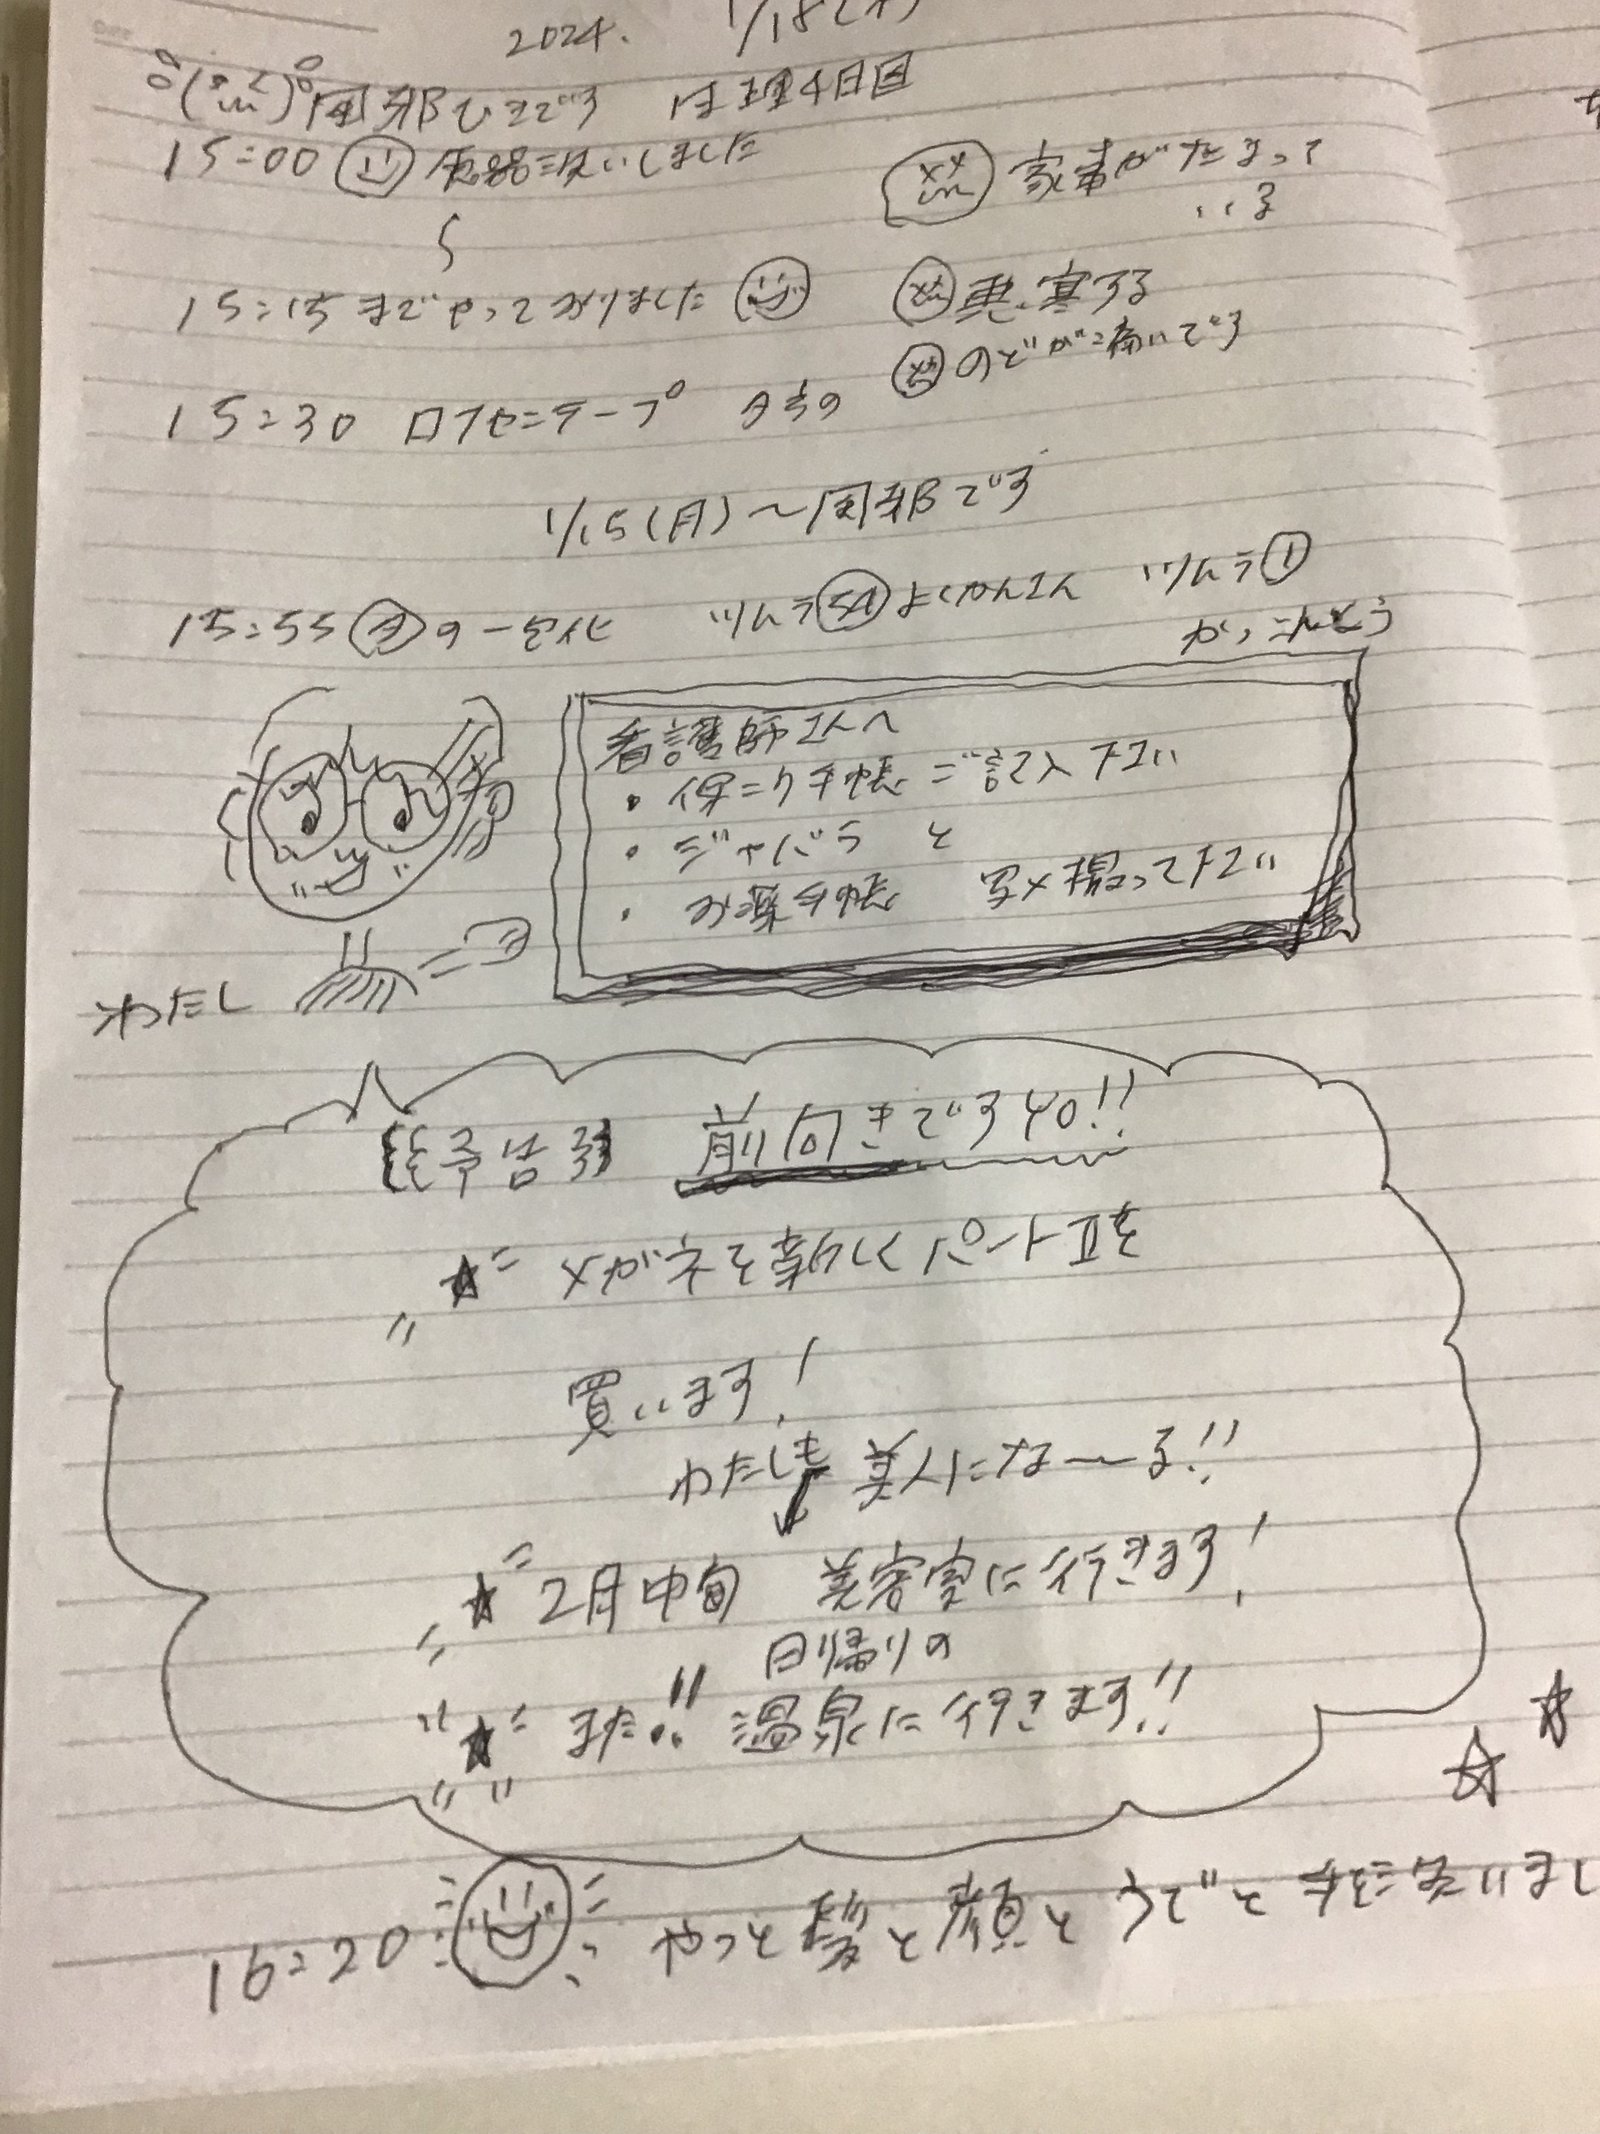 2024. 1/18(木)
風邪ひきです 生理4日目
15:00 食器洗いしました
家事がたまって
いる
15:15までやっておりました
悪寒する
のどが痛いです
15:30 ロフセニテープ 夕方の
1/15(月)〜風邪です
15:55 夕の一包化 ツムラ54よくかんさん ツムラ1
かっこんとう
看護師さんへ
・保ニク手帳ご記入下さい
・ジャバラと
・お薬手帳 写メ撮って下さい
わたし
予告 前向きですYO!!
★ メガネを新しくパートⅡを
買います!
わたしも美人にな〜る!!
★ 2月中旬 美容室に行きます!
日帰りの
★ また!! 温泉に行きます!!
16:20 やっと髪と顔とうでと手を洗いまし